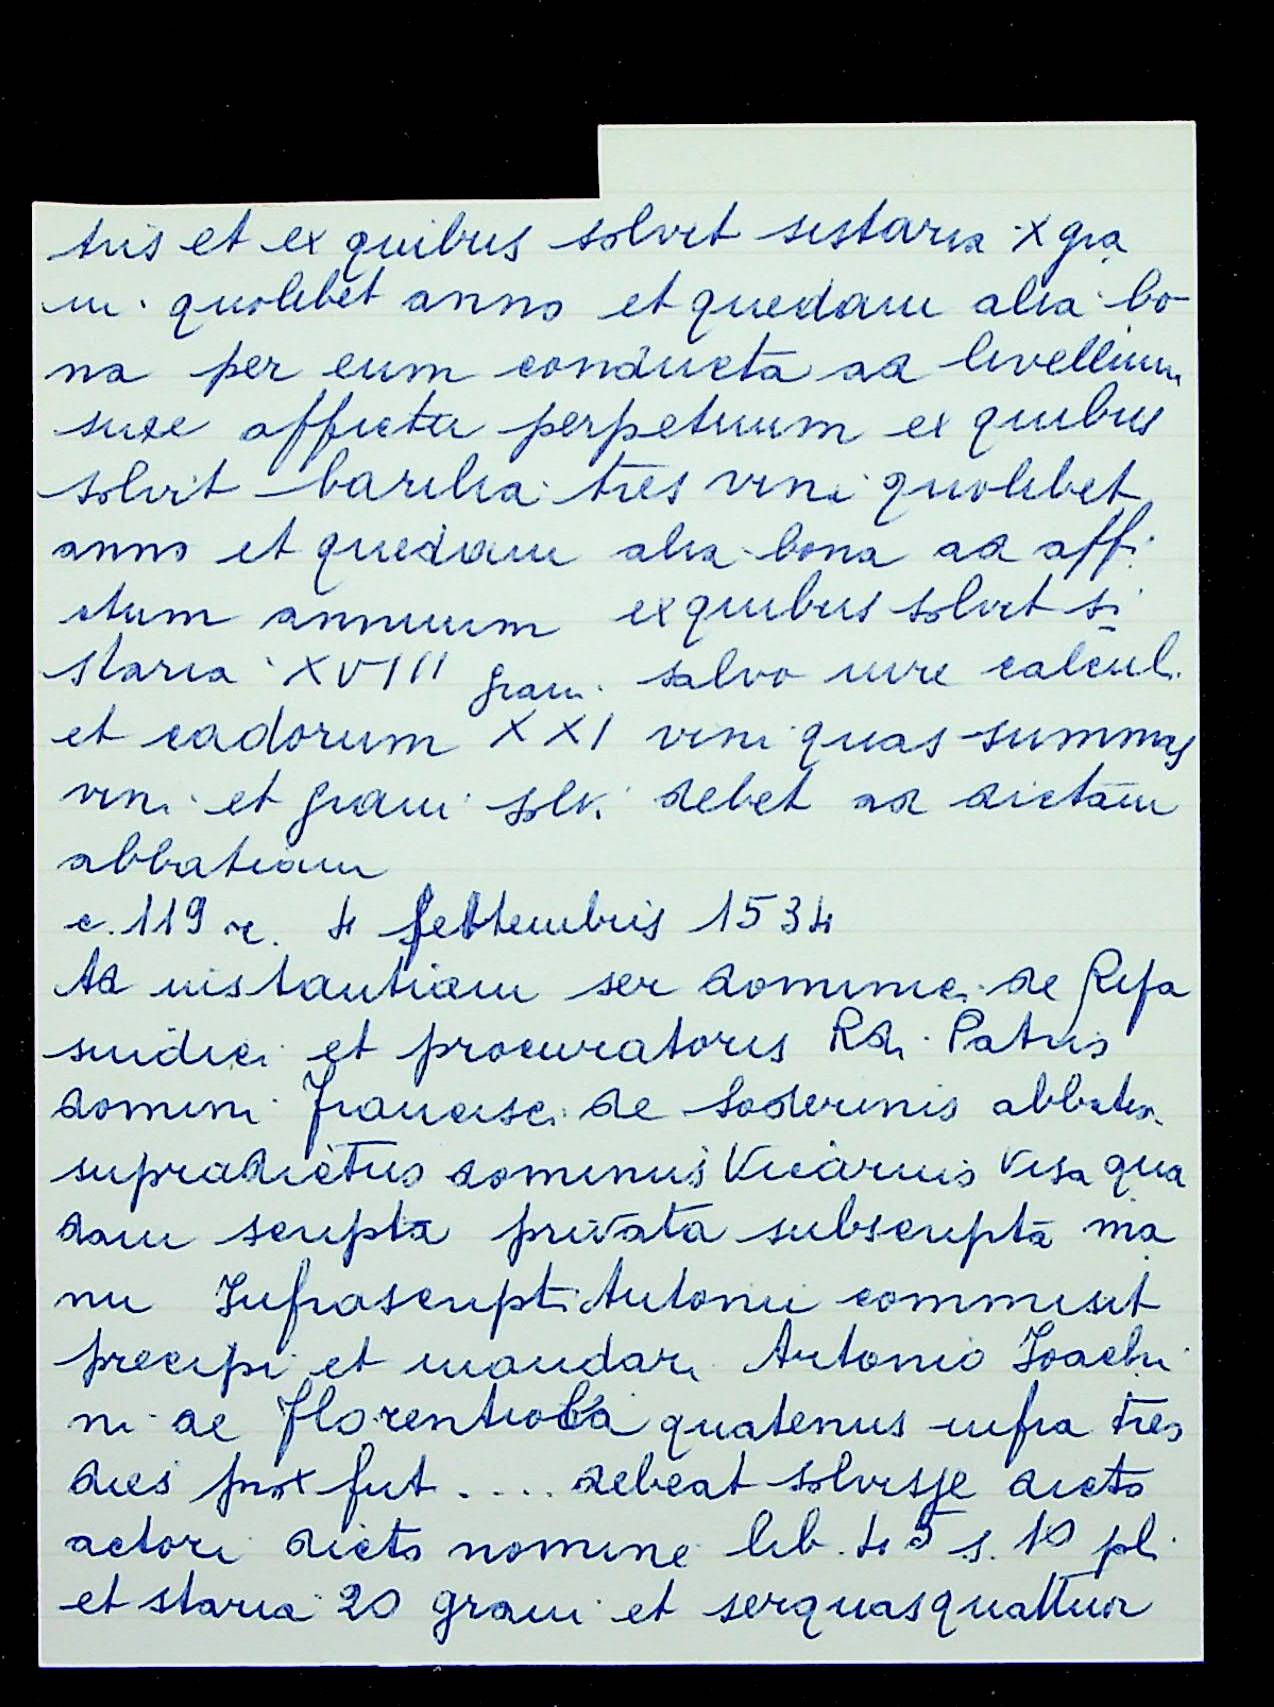 tris et ex quibus solvit sistaria X gra
ni quolibet anno et quedam alia bo
na per eum conducta ad livellium
sive affictu perpetuum ex quibus
solvit barilia tres vini quolibet
anno et quedam alia bona ad affi
ctum annuum ex quibus solvit si
staria XVIII grani salvo iure calculi
et cadorum XXI vini quas summas
vini et grani solvi debet ad dictam
abbatiam
c. 119 r. 4 settembris 1534
Ad instantiam ser dominici de Ripa
sindici et procuratoris Rdi Patris
domini Francisci de Soderinis abbatis
supradictus dominus Vicarius visa qua
dam scripta privata subscripta ma
nu Infrascripti Antonii commisit
precipi et mandari Antonio Ioachi
ni de Florentiola quatenus infra tres
dies prox fut .... debeat solvisse dicto
actori dicto nomine lib. 45 s. 10 pli
et staria 20 grani et serquas quattuor